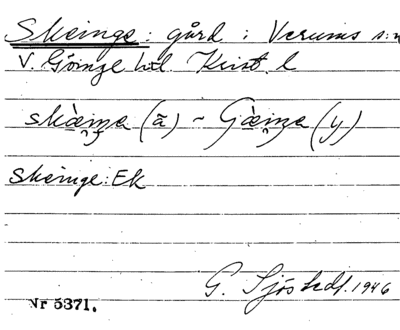 Skeinge: gård i Verums s:n
V. Göinge hd. Krist. l
skæ̀i̯ŋa (ā) ~ Gæ̀i̯ŋa (y)
Skeinge: Ek
G. Sjöstedt. 1946
Nr 5371.